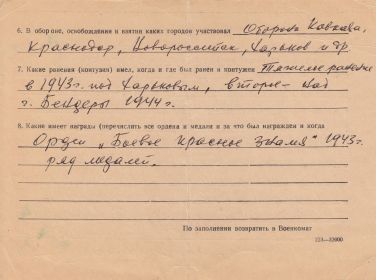 6. В обороне, освобождении и взятии каких городов участвовал Оборона Кавказа,
Краснодар, Новороссийск, Харьков и др.
7. Какие ранения (контузии) имел, когда и где был ранен и контужен Тяжелое ранение
в 1943 г. под Харьковым, второе - над
г. Бендеры 1944 г.
8. Какие имеет награды (перечислить все ордена и медали и за что был награжден и когда
Орден „Боевое Красное знамя" 1943 г.
ряд медалей.
По заполнении возвратить в Военкомат
223—32000